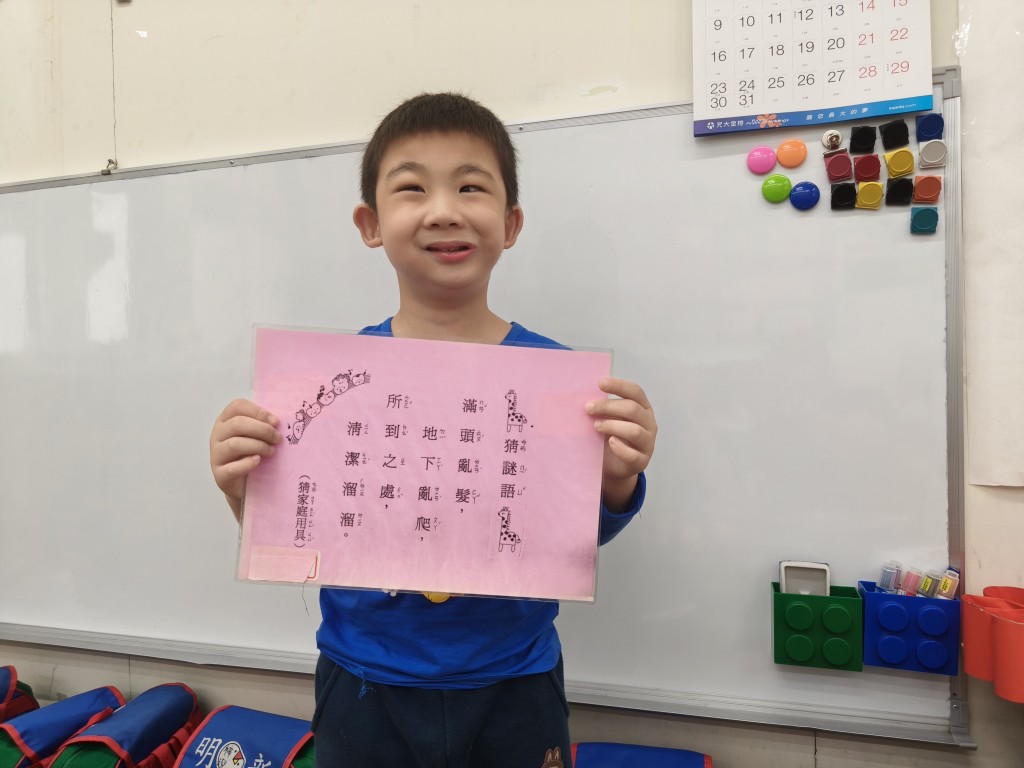 猜謎語
滿頭亂髮，
地下亂爬，
所到之處，
清潔溜溜。
（猜家庭用具）
9 10 11 12 13 14 15
16 17 18 19 20 21 22
23 24 25 26 27 28 29
30 31
明新